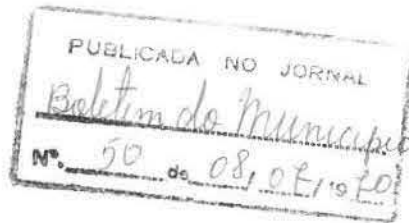 PUBLICADA NO JORNAL
Boletim do Município
Nº. 50 de 08, 07, 1970